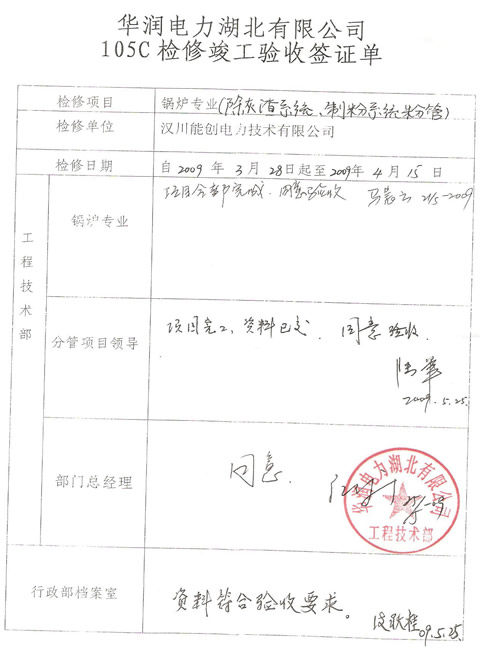 华润电力湖北有限公司
105C检修竣工验收签证单
检修项目 锅炉专业(除灰渣系统、制粉系统粉管)
检修单位 汉川能创电力技术有限公司
检修日期 自2009年3月28日起至2009年4月15日
工程技术部
锅炉专业 项目全部完成.同意验收 2/5-2009
分管项目领导 项目完工,资料已交.同意验收.
2009.5.25.
部门总经理 同意.
华润电力湖北有限公司
工程技术部
行政部档案室 资料符合验收要求。
09.5.25.